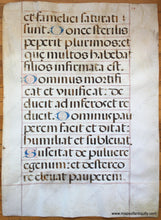 et famelici saturati
sunt. Donec sterilis
peperit plurimos: et
quę multos habebat
filios infirmata est.
Dominus mortifi
cat et viuificat: de
ducit ad inferos et re
ducit.
Dominus pau
perem facit et ditat:
humiliat et subleuat.
Suscitat de puluere
egenum: et de sterco
re eleuat pauperem:
www.mapsofantiquity.com